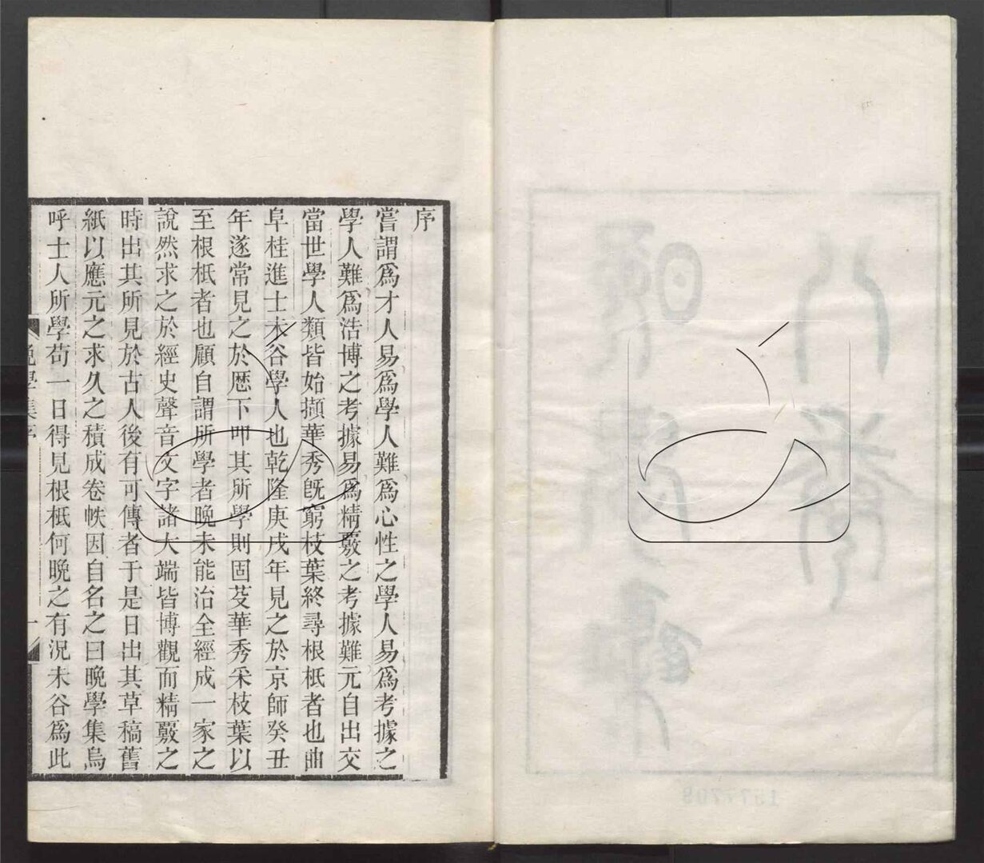 序
嘗謂爲才人易爲學人難爲心性之學人易爲考據之
學人難爲浩博之考據易爲精覈之考據難元自出交
當世學人類皆始擷華秀旣窮枝葉終尋根柢者也曲
阜桂進士未谷學人也乾隆庚戌年見之於京師癸丑
年遂常見之於厯下叩其所學則固芟華秀采枝葉以
至根柢者也顧自謂所學者晚未能治全經成一家之
說然求之於經史聲音文字諸大端皆博觀而精覈之
時出其所見於古人後有可傳者于是日出其草稿舊
紙以應元之求久之積成卷帙因自名之曰晚學集烏
呼士人所學苟一日得見根柢何晚之有況未谷爲此
晚學集序
一